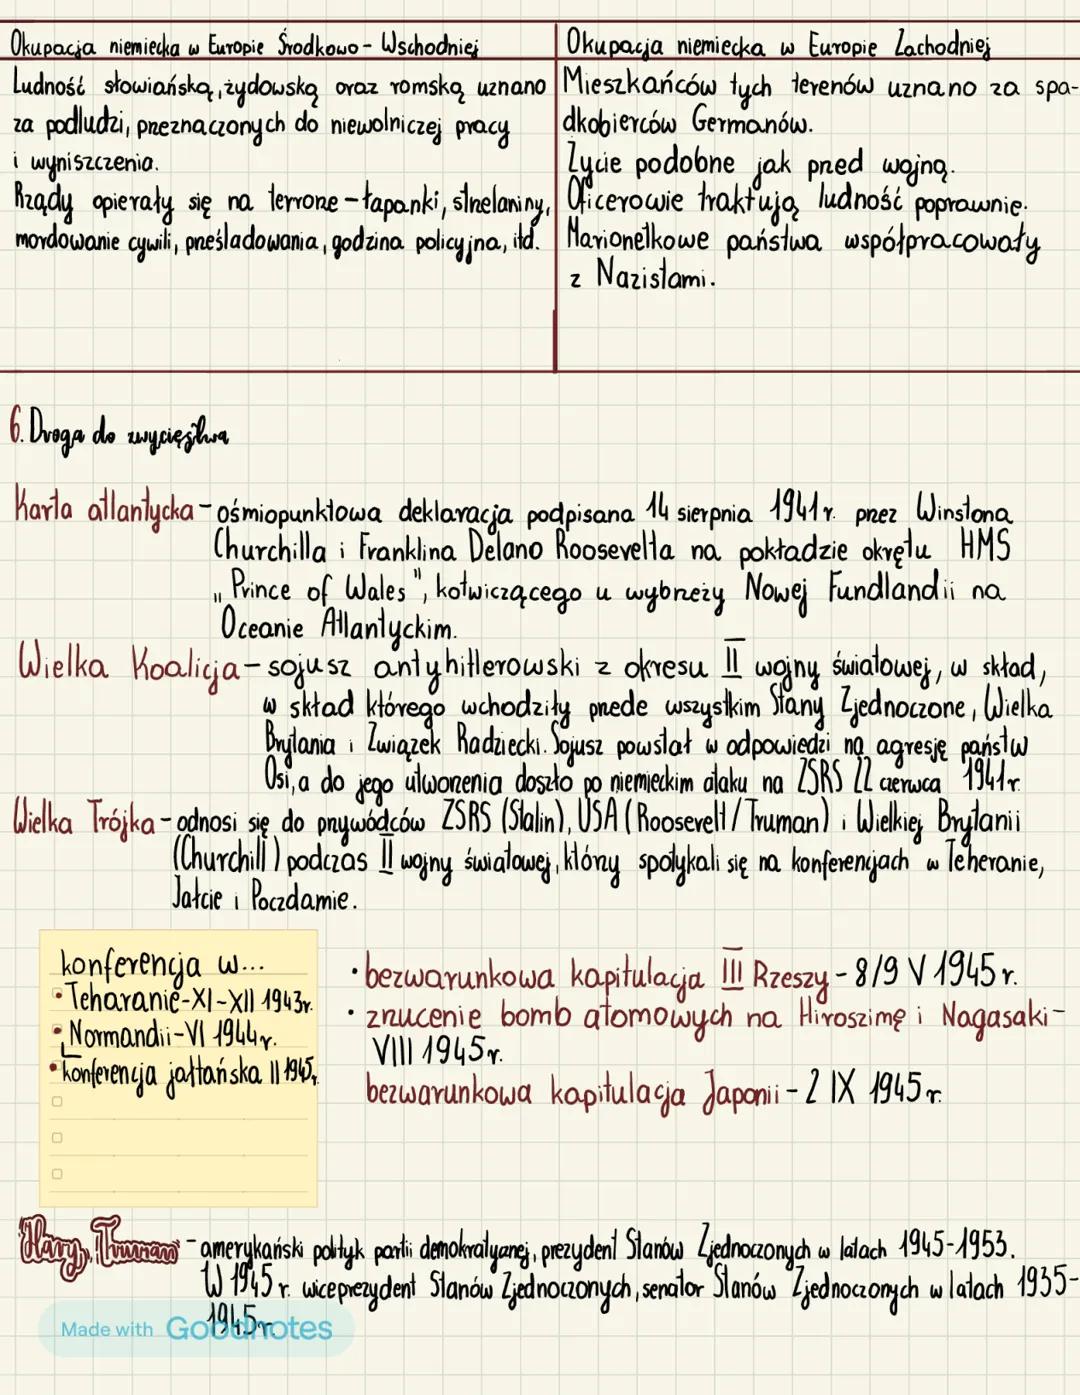 Okupacja niemiecka w Europie Środkowo-Wschodniej
Ludność słowiańską, żydowską oraz romską uznano
za podludzi, przeznaczonych do niewolniczej pracy
i wyniszczenia.
Rządy opierały się na terrorze – łapanki, strzelaniny,
mordowanie cywili, prześladowania, godzina policyjna, itd.
Okupacja niemiecka w Europie Zachodniej
Mieszkańców tych terenów uznano za spa-
dkobierców Germanów.
Życie podobne jak przed wojną.
Oficerowie traktują ludność poprawnie.
Marionetkowe państwa współpracowały
z Nazistami.
6. Droga do zwycięstwa
Karta atlantycka – ośmiopunktowa deklaracja podpisana 14 sierpnia 1941r. przez Winstona
Churchilla i Franklina Delano Roosevelta na pokładzie okrętu HMS
„Prince of Wales", kotwiczącego u wybrzeży Nowej Fundlandii na
Oceanie Atlantyckim.
Wielka Koalicja – sojusz antyhitlerowski z okresu II wojny światowej, w skład,
w skład którego wchodziły przede wszystkim Stany Zjednoczone, Wielka
Brytania i Związek Radziecki. Sojusz powstał w odpowiedzi na agresję państw
Osi, a do jego utworzenia doszło po niemieckim ataku na ZSRS 22 czerwca 1941r.
Wielka Trójka – odnosi się do przywódców ZSRS (Stalin), USA (Roosevelt/Truman) i Wielkiej Brytanii
(Churchill) podczas II wojny światowej, którzy spotykali się na konferencjach w Teheranie,
Jałcie i Poczdamie.
konferencja w...
• Teharanie-XI-XII 1943r.
• Normandii-VI 1944r.
• konferencja jałtańska II 1945r
• bezwarunkowa kapitulacja III Rzeszy – 8/9 V 1945r.
• zrzucenie bomb atomowych na Hiroszimę i Nagasaki-
VIII 1945r.
bezwarunkowa kapitulacja Japonii – 2 IX 1945r.
Harry Truman – amerykański polityk partii demokratycznej, prezydent Stanów Zjednoczonych w latach 1945-1953.
W 1945 r. wiceprezydent Stanów Zjednoczonych, senator Stanów Zjednoczonych w latach 1935-
1945r.
Made with Goodnotes